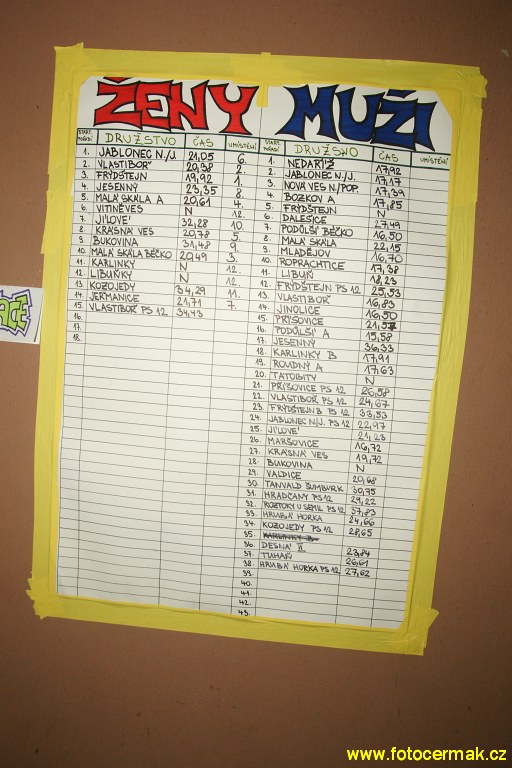 ŽENY
START. POŘADÍ DRUŽSTVO ČAS UMÍSTĚNÍ
1. JABLONEC N./J. 21,05 6.
2. VLASTIBOŘ 20,38 2.
3. FRÝDŠTEJN 19,92 1.
4. JESENNÝ 23,35 8.
5. MALÁ SKÁLA A 20,61 4.
6. VITINĚVES N 12.
7. JÍLOVÉ 32,28 10.
8. KRÁSNÁ VES 20,78 5.
9. BUKOVINA 31,48 9.
10. MALÁ SKÁLA BÉČKO 20,49 3.
11. KARLINKY N
12. LIBUŇKY N 12.
13. KOZOJEDY 34,29 12.
14. JERMANICE 21,71 11.
15. VLASTIBOŘ PS 12 34,43 7.
16.
17.
18.
MUŽI
START. POŘADÍ DRUŽSTVO ČAS UMÍSTĚNÍ
1. NEDAŘÍŽ 17,92
2. JABLONEC N./J. 17,17
3. NOVÁ VES N./POP. 17,39
4. BOZKOV A 17,85
5. FRÝDŠTEJN N
6. DALEŠICE 27,49
7. PODŮLŠÍ BÉČKO 16,50
8. MALÁ SKÁLA 22,15
9. MLADĚJOV 16,70
10. ROPRACHTICE 17,38
11. LIBUŇ 18,23
12. FRÝDŠTEJN PS 12 25,53
13. VLASTIBOŘ 16,83
14. JINOLICE 16,50
15. PŘÍŠOVICE 21,57
16. PODŮLŠÍ A 15,58
17. JESENNÝ 36,33
18. KARLINKY B 17,91
19. ROUDNÝ A 17,63
20. TATOBITY N
21. PŘÍŠOVICE PS 12 26,58
22. VLASTIBOŘ PS 12 24,67
23. FRÝDŠTEJN B PS 12 33,53
24. JABLONEC N/J. PS 12 22,97
25. JÍLOVÉ 21,23
26. MARŠOVICE 16,72
27. KRÁSNÁ VES 19,72
28. BUKOVINA N
29. VALDICE 20,68
30. TANVALD ŠUMBURK 30,75
31. HRADČANY PS 12 29,22
32. ROZTOKY U SEMIL PS 12 37,83
33. HRUBÁ HORKA 24,66
34. KOZOJEDY PS 12 28,65
35. KARLINKY B
36. DESNÁ II. 23,84
37. TUHAŇ 26,61
38. HRUBÁ HORKA PS 12 27,62
39.
40.
41.
42.
43.
www.fotocermak.cz